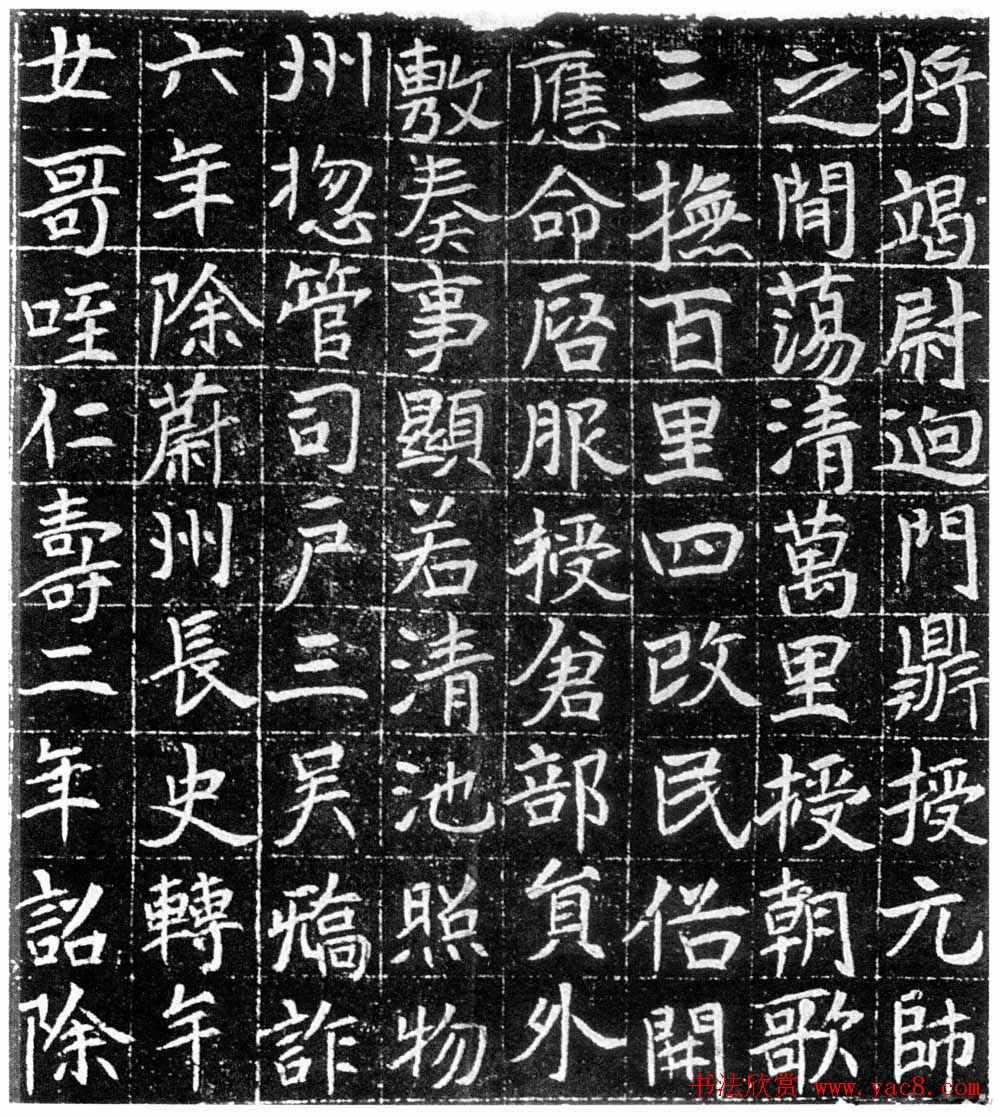 将竭尉迥門鼎授元帥
之閒蕩清萬里授朝歌
三撫百里四改民俗開
應命啓服授倉部負外
敷奏事顯若清池照物
州揔管司户三吴矯詐
六年除蔚州長史轉年
女哥咥仁壽二年詔除
书法欣赏 www.yac8.com